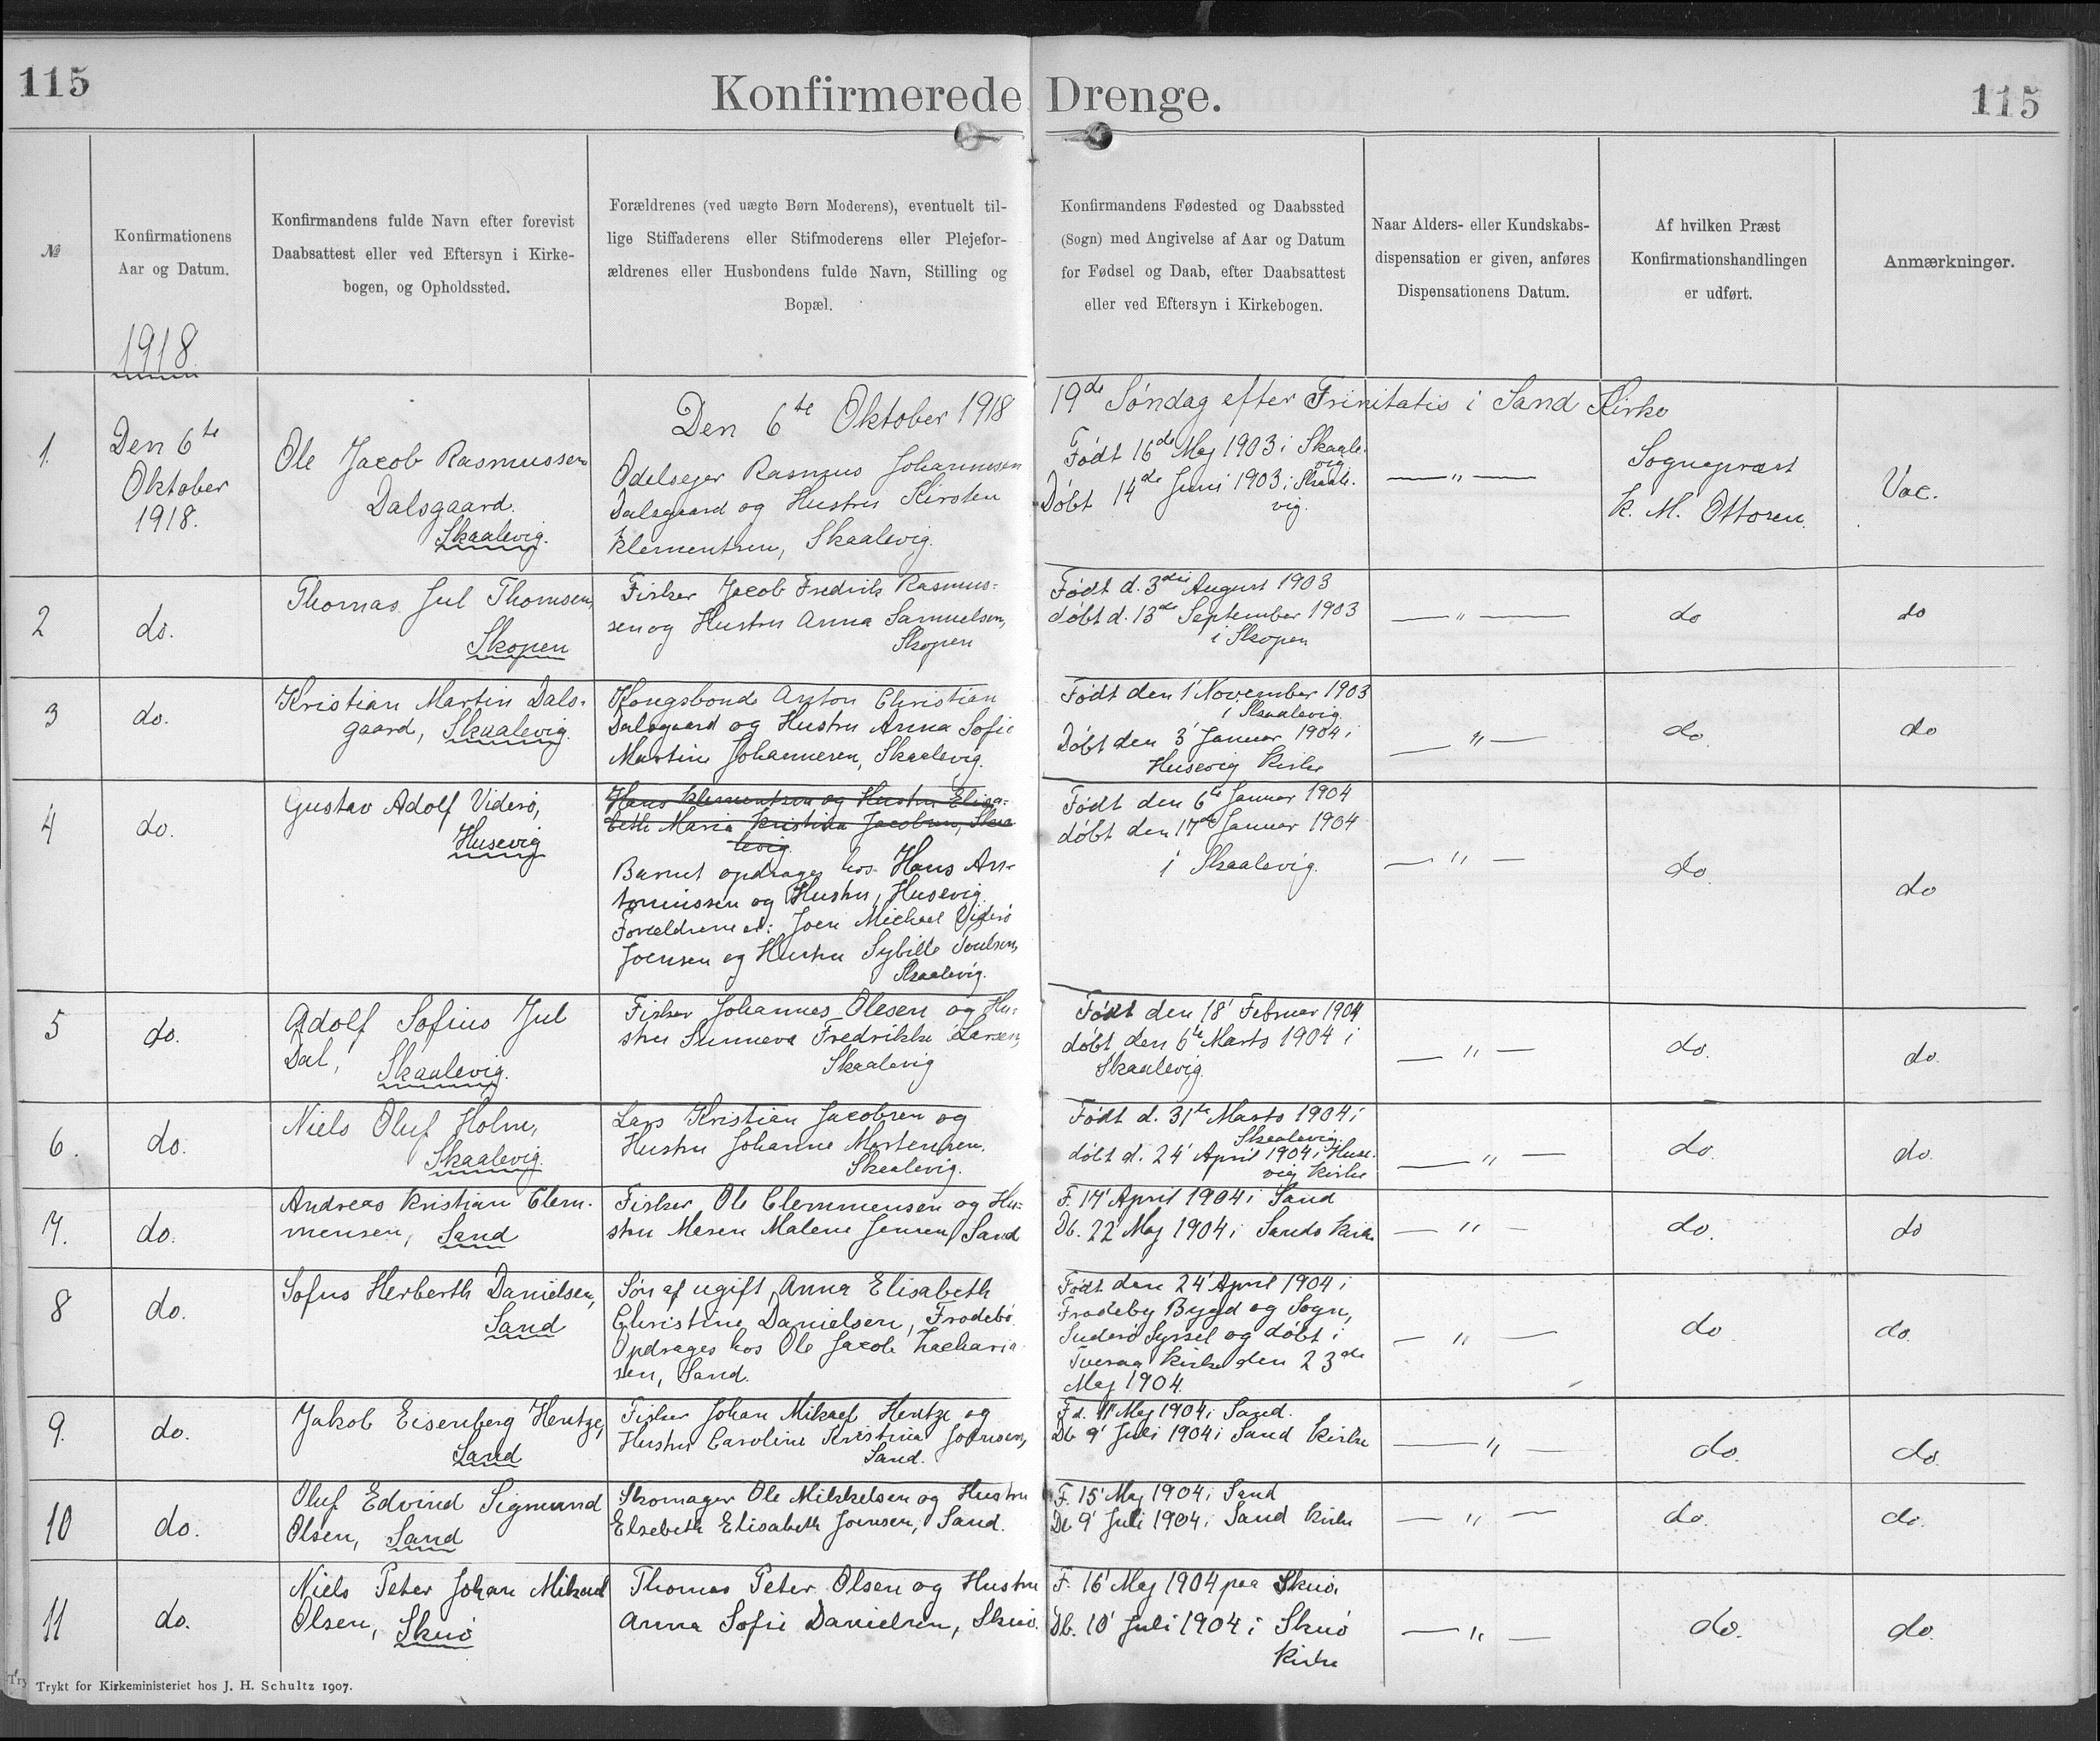 115
Konfirmerede Drenge.
115
№
Konfirmationens
Aar og Datum.
Konfirmandens fulde Navn efter forevist
Daabsattest eller ved Eftersyn i Kirke-
bogen, og Opholdssted.
Forældrenes (ved uægte Børn Moderens), eventuelt til-
lige Stiffaderens eller Stifmoderens eller Plejefor-
ældrenes eller Husbondens fulde Navn, Stilling og
Bopæl.
Konfirmandens Fødested og Daabssted
(Sogn) med Angivelse af Aar og Datum
for Fødsel og Daab, efter Daabsattest
eller ved Eftersyn i Kirkebogen.
Naar Alders- eller Kundskabs-
dispensation er given, anføres
Dispensationens Datum.
Af hvilken Præst
Konfirmationshandlingen
er udført.
Anmærkninger.
1918
Den 6te Oktober 1918 19de Søndag efter Trinitatis i Sand Kirke
1.
Den 6te
Oktober
1918.
Ole Jacob Rasmussen
Dalsgaard.
Skaalevig.
Odelsejer Rasmus Johannesen
Dalsgaard og Hustru Kirsten
Klementsen, Skaalevig.
Født 16de Maj 1903 i Skaale-
vig
Døbt 14de Juni 1903 i Skaale-
vig.
— " —
Sognepræst
K. M. Ottosen.
Vac.
2
do.
Thomas Jul Thomsen,
Skopen
Fisker Jacob Fredrik Rasmus-
sen og Hustru Anna Samuelsen,
Skopen
Født d. 3die August 1903
døbt d. 13de September 1903
i Skopen
— " —
do
do
3
do.
Kristian Martin Dals-
gaard, Skaalevig.
Kongsbonde Anton Christian
Dalsgaard og Hustru Anna Sofie
Martine Johannesen, Skaalevig.
Født den 1' November 1903
i Skaalevig.
Døbt den 3' Januar 1904 i
Husevig Kirke
— " —
do.
do
4
do.
Gustav Adolf Viderø,
Husevig
Hans Klementsen og Hustru Elisa-
beth Maria Kristina Jacobsen, Skaa
levig.
Barnet opdrages hos Hans An-
toniussen og Hustru, Husevig.
Forældrene er: Joen Michael Viderø
Joensen og Hustru Sybille Poulsen,
Skaalevig.
Født den 6te Januar 1904
døbt den 17de Januar 1904
i Skaalevig.
— " —
do.
do
5
do.
Adolf Sofius Jul
Dal, Skaalevig.
Fisker Johannes Olesen og Hu-
stru Sunneva Fredrikke Larsen,
Skaalevig
Født den 18' Februar 1904
døbt den 6te Marts 1904 i
Skaalevig.
— " —
do.
do.
6.
do.
Niels Oluf Holm,
Skaalevig.
Lars Kristian Jacobsen og
Hustru Johanne Mortensen.
Skaalevig.
Født d. 31te Marts 1904 i
Skaalevig.
døbt d. 24' April 1904 i Huse-
vig Kirke
— " —
do.
do.
7.
do.
Andreas Kristian Clem-
mensen, Sand
Fisker Ole Clemmensen og Hu-
stru Maren Malene Jensen, Sand
F. 17' April 1904 i Sand
Db. 22' Maj 1904 i Sands Kirke
— " —
do.
do
8
do.
Sofus Herberth Danielsen,
Sand
Søn af ugift Anna Elisabeth
Christine Danielsen, Frodebø.
Opdrages hos Ole Jacob Zacharia-
sen, Sand.
Født den 24' April 1904 i
Frodeby Bygd og Sogn,
Suderø Syssel og døbt i
Tveraa Kirke den 23de
Maj 1904.
— " —
do
do.
9.
do.
Jakob Eisenberg Hentze,
Sand
Fisker Johan Mikael Hentze og
Hustru Caroline Kristina Joensen,
Sand.
Fd. 11' Maj 1904 i Sand.
Db. 9' Juli 1904 i Sand Kirke
— " —
do.
do.
10
do.
Oluf Edvind Sigmund
Olsen, Sand
Skomager Ole Mikkelsen og Hustru
Elsebeth Elisabeth Joensen, Sand.
F. 15' Maj 1904 i Sand
Db 9' Juli 1904 i Sand Kirke
— " —
do.
do.
11
do.
Niels Peter Johan Mikael
Olsen, Skuø
Thomas Peter Olsen og Hustru
Anna Sofie Danielsen, Skuø.
F. 16' Maj 1904 paa Skuø.
Db. 10' Juli 1904 i Skuø
Kirke
— " —
do.
do.
Trykt for Kirkeministeriet hos J. H. Schultz 1907.